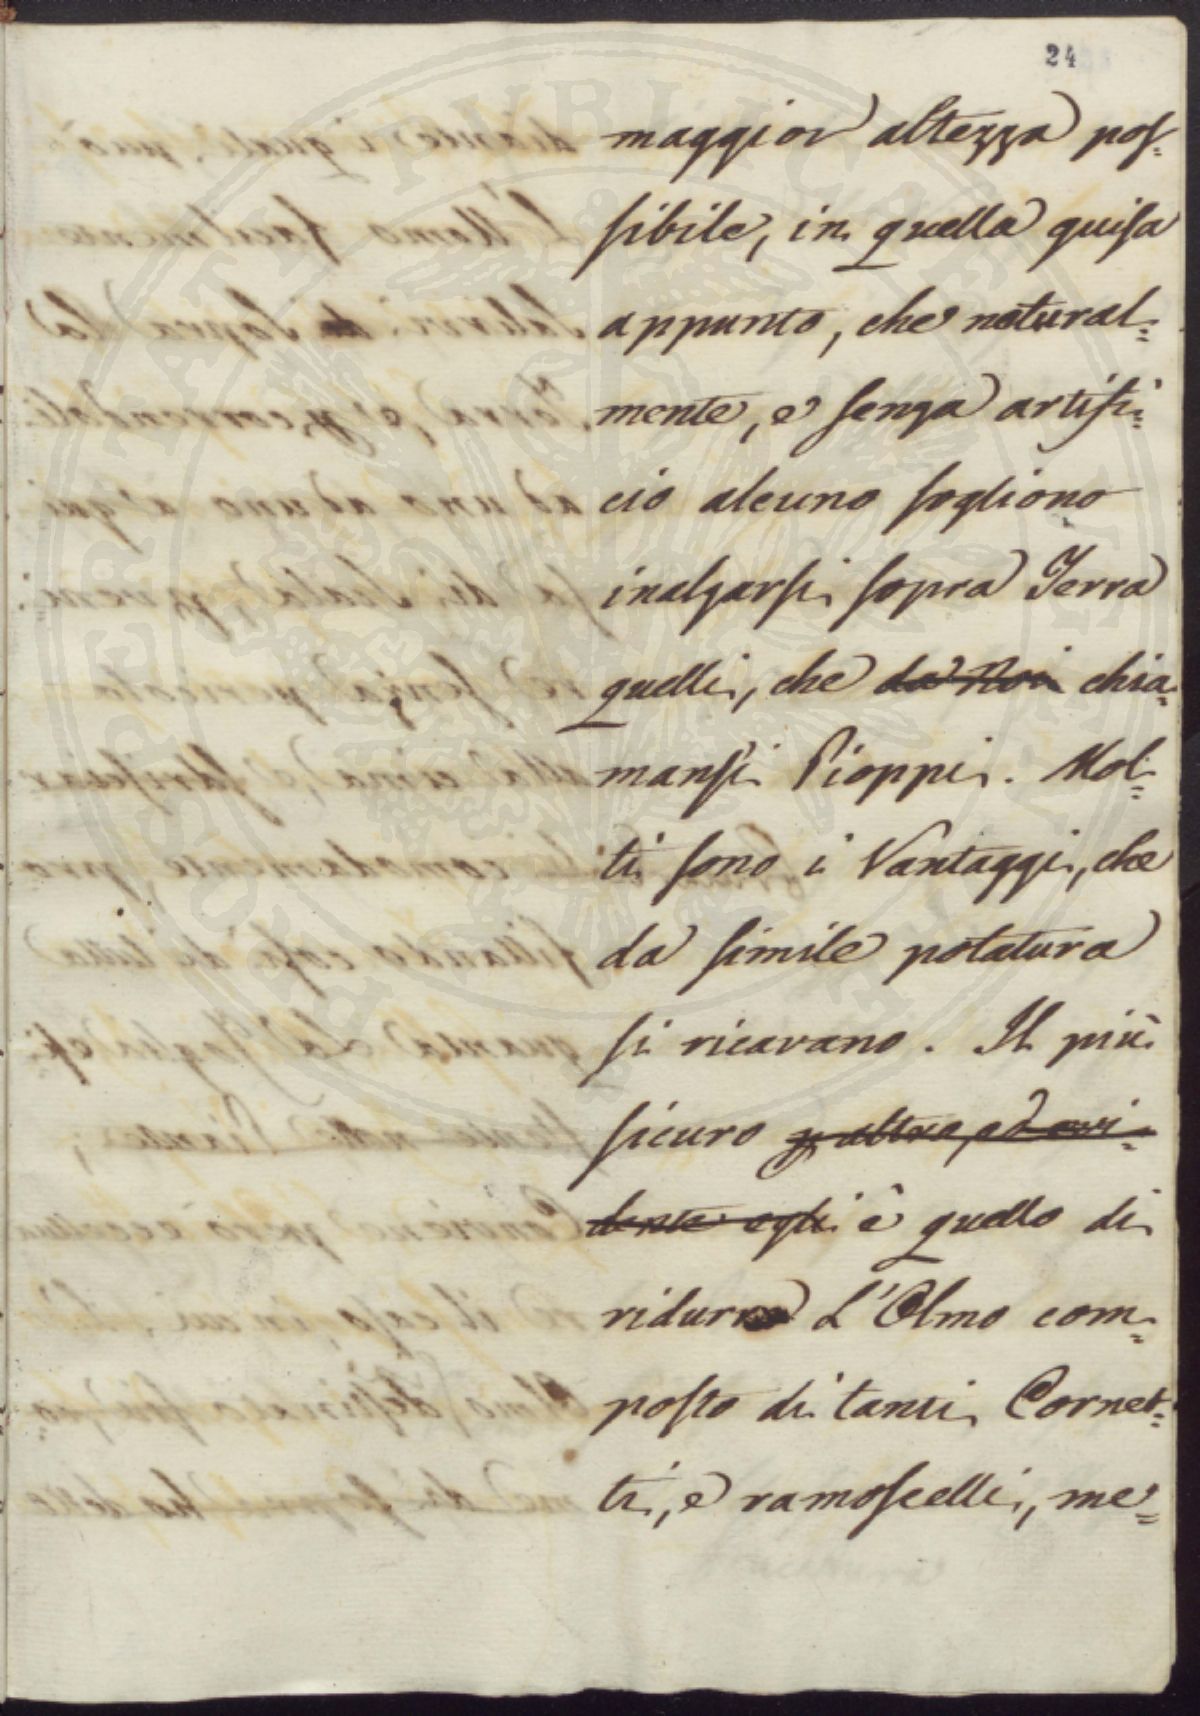 24
maggior altezza pos=
sibile, in quella guisa
appunto, che natural=
mente, e senza artifi=
cio alcuno sogliono
inalzarsi sopra Terra
quelli, che da Noi chia=
mansi Pioppi. Mol=
ti sono i Vantaggi, che
da simile potatura
si ricavano. Il più
sicuro altro, ed evi=
dente egli è quello di
ridurre L'Olmo com=
posto di tanti Cornet=
ti, e ramoscelli, me=